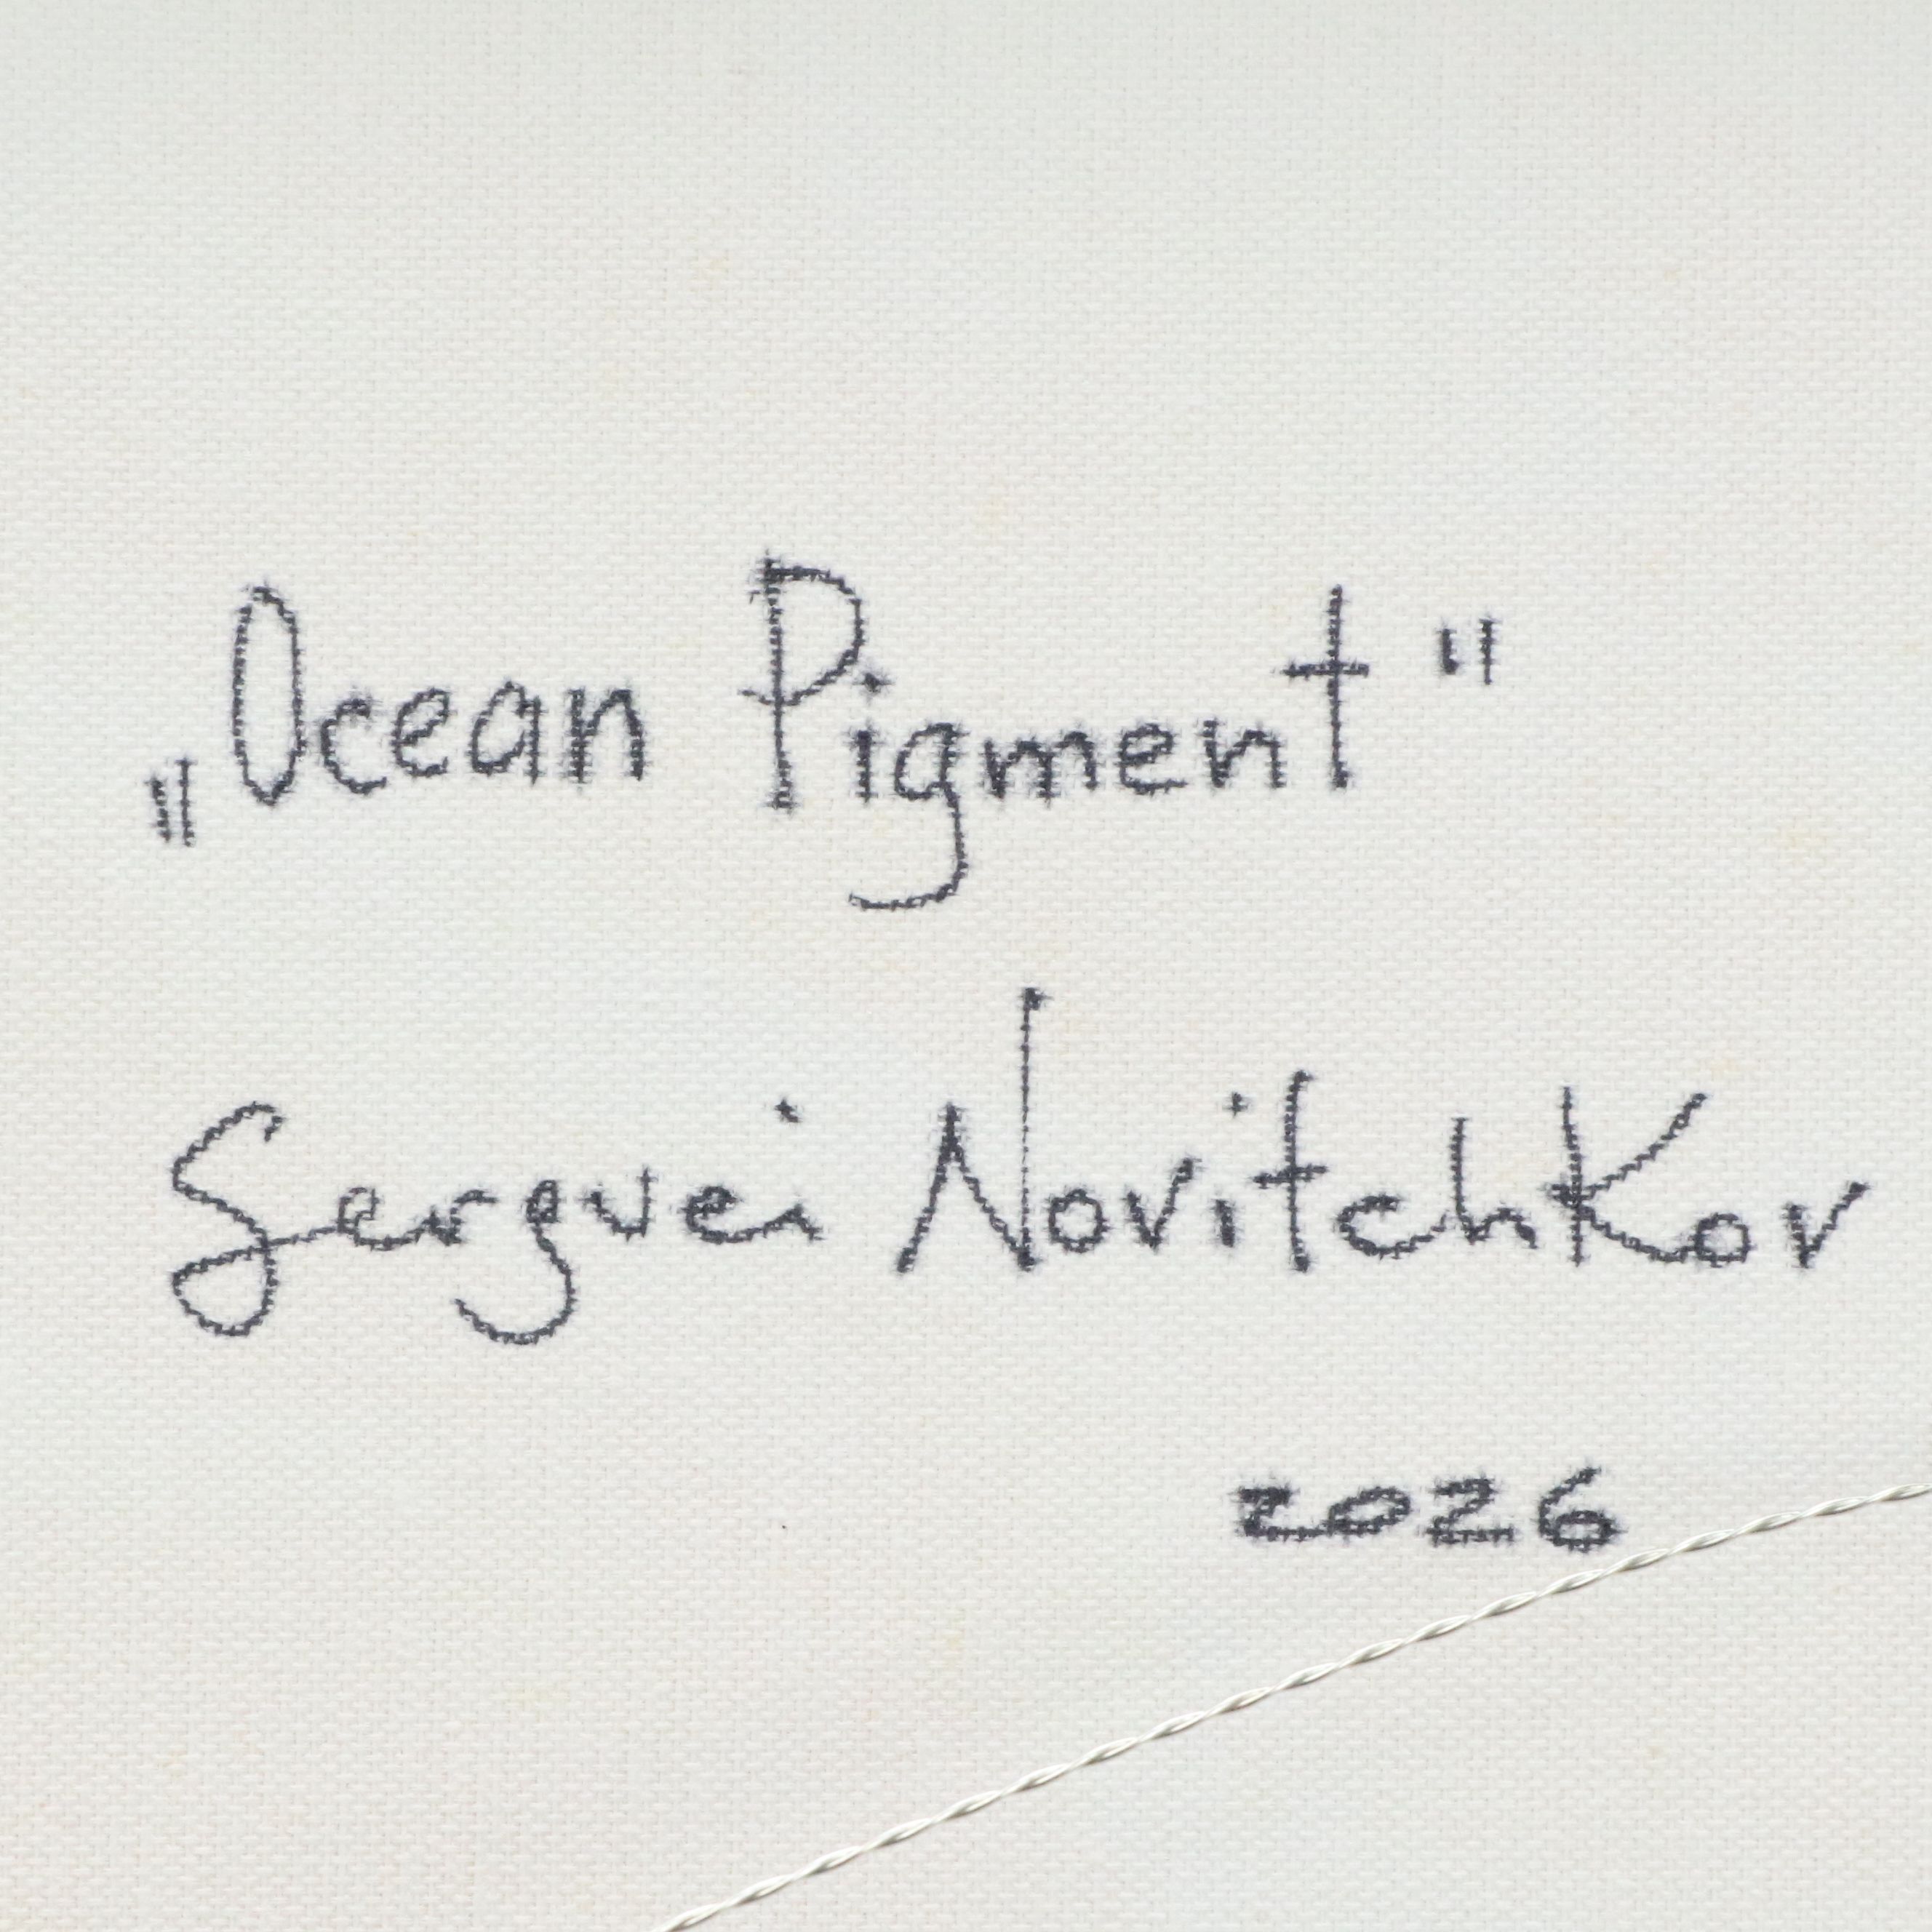 „Ocean Pigment"
Serguei Novitchkov
2026